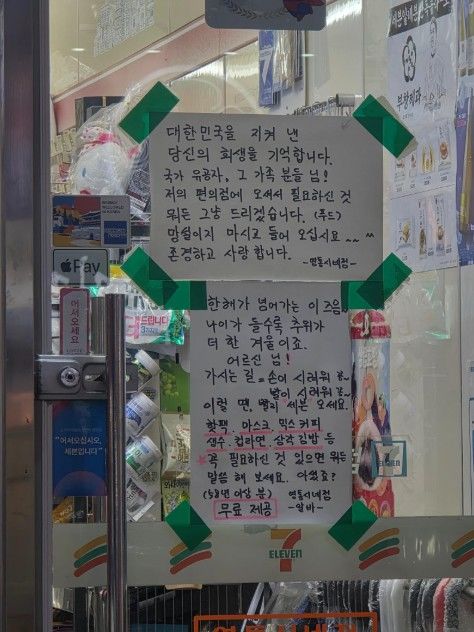 대한민국을 지켜 낸
당신의 희생을 기억합니다.
국가 유공자, 그 가족 분들 님!
저의 편의점에 오셔서 필요하신 것
뭐든 그냥 드리겠습니다. (푸드)
망설이지 마시고 들어 오십시요~~^
존경하고 사랑합니다.
-명동시네점-
한해가 넘어가는 이 즈음
나이가 들수록 추위가
더 한 겨울이죠.
어르신 님!
가시는 길 = 손이 시려워 꽁~
발이 시려워 꽁~
이럴 땐, 빨리 세븐 오세요.
핫팩, 마스크, 믹스커피
생수, 컵라면, 삼각김밥 등
꼭 필요하신 것 있으면 뭐든
말씀 해 보세요. 아셨죠?
(58년 이상 분)
무료 제공
명동시네점
-알바-
Pay
어서오세요
"어서오십시오,
세븐일레븐
입니다"
7 ELEVEN
ELEVEN